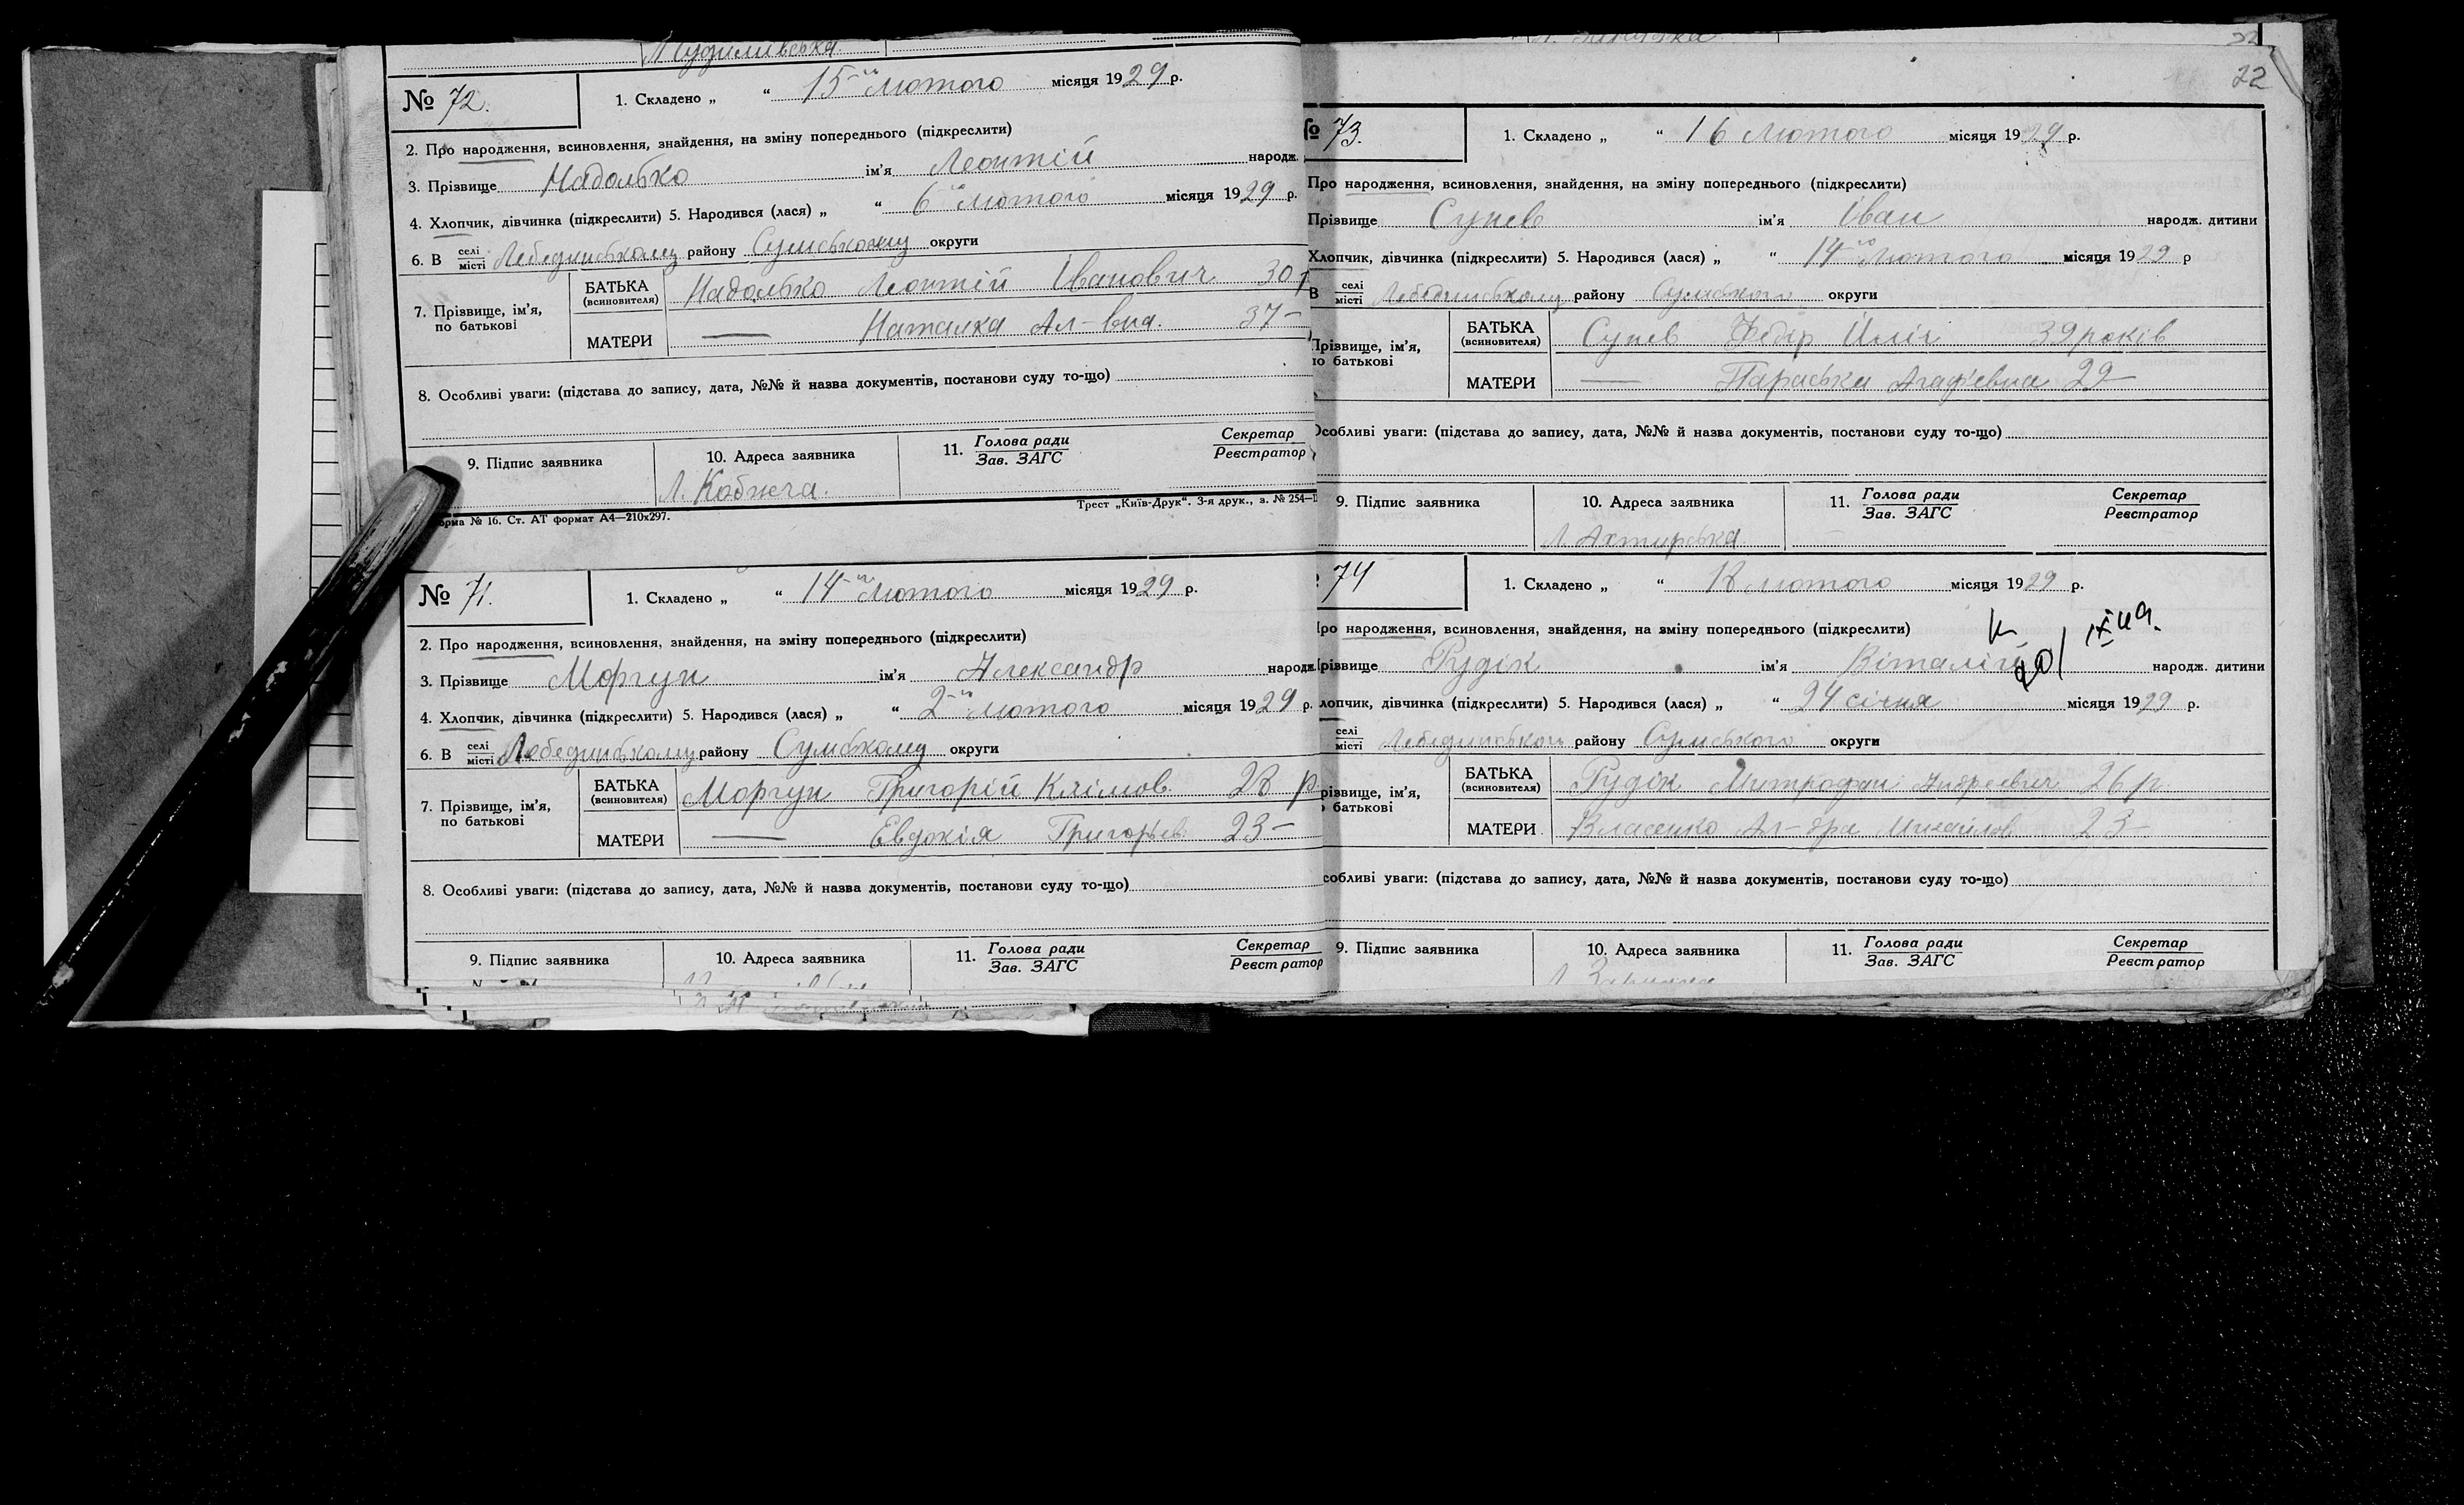 № 72.
1. Складено „ “ 15-го Лютого місяця 1929 р.
2. Про народження, всиновлення, знайдення, на зміну попереднього (підкреслити)
3. Прізвище Надолько ім'я Леонтій народж.
4. Хлопчик, дівчинка (підкреслити) 5. Народився (лася) „ “ 6 лютого місяця 1929 р.
6. В селі місті Лебединському району Сумському округи
7. Прізвище, ім'я, по батькові
БАТЬКА (всиновителя) Надолько Леонтій Іванович 30 р
МАТЕРИ — Наталка Ал-вна. 37 —
8. Особливі уваги: (підстава до запису, дата, №№ й назва документів, постанови суду то-що)
9. Підпис заявника
10. Адреса заявника
11. Голова ради Зав. ЗАГС
Секретар Реєстратор
Л. Кобижча.
форма № 16. Ст. АТ формат А4—210х297.
Трест „Київ-Друк“. 3-я друк., з. № 254—
№ 71.
1. Складено „ “ 14-го Лютого місяця 1929 р.
2. Про народження, всиновлення, знайдення, на зміну попереднього (підкреслити)
3. Прізвище Моргун ім'я Александр народж.
4. Хлопчик, дівчинка (підкреслити) 5. Народився (лася) „ “ 2-го лютого місяця 1929 р.
6. В селі місті Лебединському району Сумському округи
7. Прізвище, ім'я, по батькові
БАТЬКА (всиновителя) Моргун Григорій Клімов. 28 р
МАТЕРИ — Евдокія Григорьев. 23 —
8. Особливі уваги: (підстава до запису, дата, №№ й назва документів, постанови суду то-що)
9. Підпис заявника
10. Адреса заявника
11. Голова ради Зав. ЗАГС
Секретар Реєстратор
22
№ 73.
1. Складено „ “ 16 Лютого місяця 1929 р.
Про народження, всиновлення, знайдення, на зміну попереднього (підкреслити)
Прізвище Супев ім'я Іван народж. дитини
Хлопчик, дівчинка (підкреслити) 5. Народився (лася) „ “ 14-го Лютого місяця 1929 р
В селі місті Лебединському району Сумського округи
Прізвище, ім'я, по батькові
БАТЬКА (всиновителя) Супев Федір Ілліч 39 років
МАТЕРИ — Параська Агафʼевна 29 —
Особливі уваги: (підстава до запису, дата, №№ й назва документів, постанови суду то-що)
9. Підпис заявника
10. Адреса заявника
11. Голова ради Зав. ЗАГС
Секретар Реєстратор
Л. Ахтирська
74
1. Складено „ “ 18 лютого місяця 1929 р.
Про народження, всиновлення, знайдення, на зміну попереднього (підкреслити)
Прізвище Рудік ім'я Віталій народж. дитини
Хлопчик, дівчинка (підкреслити) 5. Народився (лася) „ “ 24 січня місяця 1929 р.
селі місті Лебединськом району Сумського округи
Прізвище, ім'я, по батькові
БАТЬКА (всиновителя) Рудік Митрофан Андреевич 26 р.
МАТЕРИ Власенко Ал-дра Михайлов. 23 —
Особливі уваги: (підстава до запису, дата, №№ й назва документів, постанови суду то-що)
9. Підпис заявника
10. Адреса заявника
11. Голова ради Зав. ЗАГС
Секретар Реєстратор